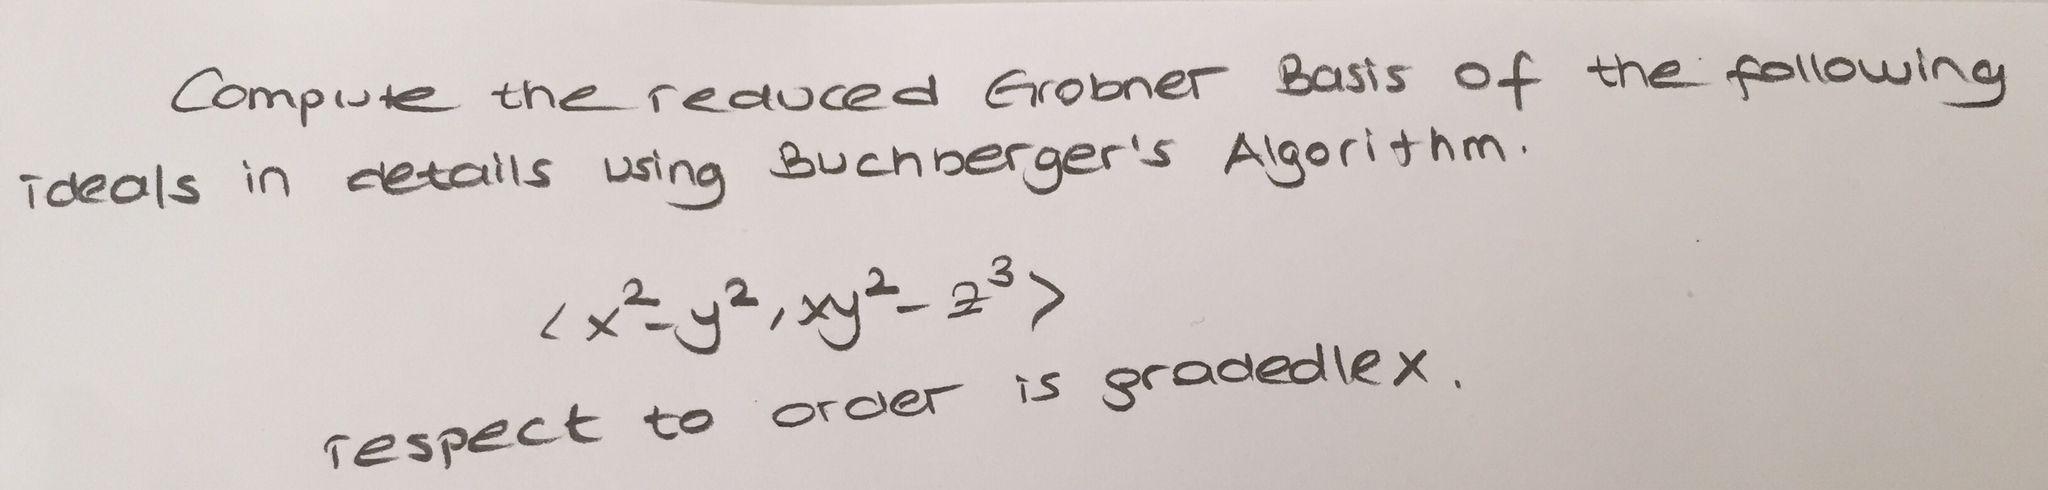 Compute the reduced Grobner Basis of the following
ideals in details using Buchberger's Algorithm.
<x²-y², xy²-z³>
respect to order is gradedlex.